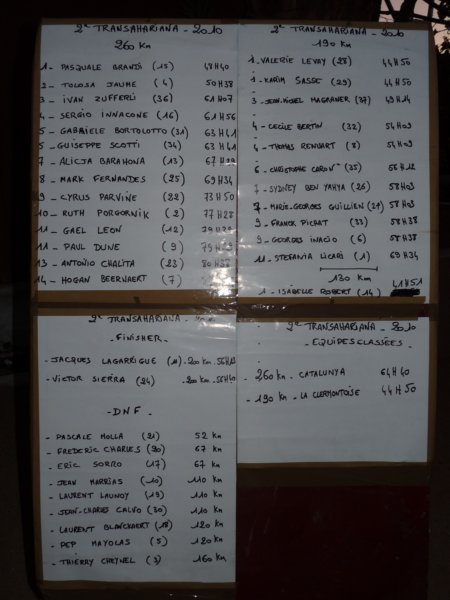 2e TRANSAHARIANA - 2010
260 Km
1 - PASQUALE BRANDI (15) 48H40
2 - TOLOSA JAUME (4) 50H38
3 - IVAN ZUFFERLI (36) 61H07
4 - SERGIO INNACONE (16) 61H56
5 - GABRIELE BORTOLOTTO (31) 63H41
5 - GUISEPPE SCOTTI (34) 63H41
7 - ALICIA BARAHONA (13) 67H
8 - MARK FERNANDES (25) 69H34
9 - CYRUS PARVINE (22) 73H50
10 - RUTH PORGORNIK (2) 77H28
11 - GAEL LEON (12)
11 - PAUL DUNE (9) 79H
13 - ANTONIO CHALITA (23) 80H
14 - HOGAN BEERNAERT (7)
2e TRANSAHARIANA - 2010
190 Km
1 - VALERIE LEVAY (28) 44H50
1 - KARIM SASSE (29) 44H50
3 - JEAN-MICHEL MAGRANER (37) 49H14
4 - CECILE BERTIN (32) 54H09
4 - THOMAS RENVART (8) 54H09
6 - CHRISTOPHE CARON (35) 56H12
7 - SYDNEY BEN YAHYA (26) 58H03
7 - MARIE-GEORGES GUILLIEN (27) 58H03
9 - FRANCK PICHAT (33) 58H38
9 - GEORGES INACIO (6) 58H38
11 - STEFANIA LICARI (1) 69H34
130 Km
1 - ISABELLE ROBERT (14) 41H51
2e TRANSAHARIANA
- FINISHER -
- JACQUES LAGARRIGUE (11) - 200 Km -
- VICTOR SIERRA (24) - 200 Km - 56H40
- DNF -
- PASCALE MOLLA (21) 52 Km
- FREDERIC CHARLES (20) 67 Km
- ERIC SORRO (17) 67 Km
- JEAN MARRIAS (10) 110 Km
- LAURENT LAUNOY (19) 110 Km
- JEAN-CHARLES CALVO (30) 110 Km
- LAURENT BLANCKAERT (18) 120 Km
- PEP MAYOLAS (5) 120 Km
- THIERRY CHEYNEL (3) 160 Km
2e TRANSAHARIANA - 2010
- EQUIPES CLASSÉES -
- 260 Km - CATALUNYA 64H40
- 190 Km - LA CLERMONTOISE 44H50